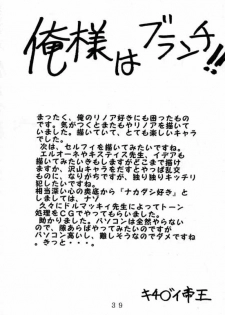 俺様は ブランチ!!
まったく、俺のリノア好きにも困ったもの
です。気がつくとまたもやリノアを描いて
いました。描いていて、とても楽しいキャラ
でした。
次は、セルフィを描いてみたいですね。
エルオーネやキスティス先生、イデアも
描いてみたいきもしますがどこまで描け
ますか、沢山キャラをだすとやっぱ乱交
ものに、なりがちですが、独り独りキッチリ
犯したいですね。
相当深い心の奥底から「ナカダシ好き」と
しては、ナゾ
久々にドルマッキィ先生によってトーン
処理をCGでやってもらいました。
やっぱ、いいですね。パソコンは全然やらない
ので、暇あらばやってみたいですが
パソコン高いし、難しそうなのでダメですね。
きっと・・・。
キ4○イ帝王
39